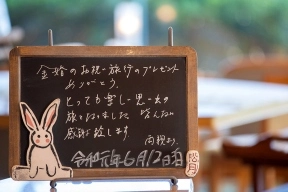 金婚のお祝い旅行のプレゼント
ありがとう。
とっても楽しい思い出の
旅となりました 皆んなに
感謝致します。
両親より
令和元年6月12日